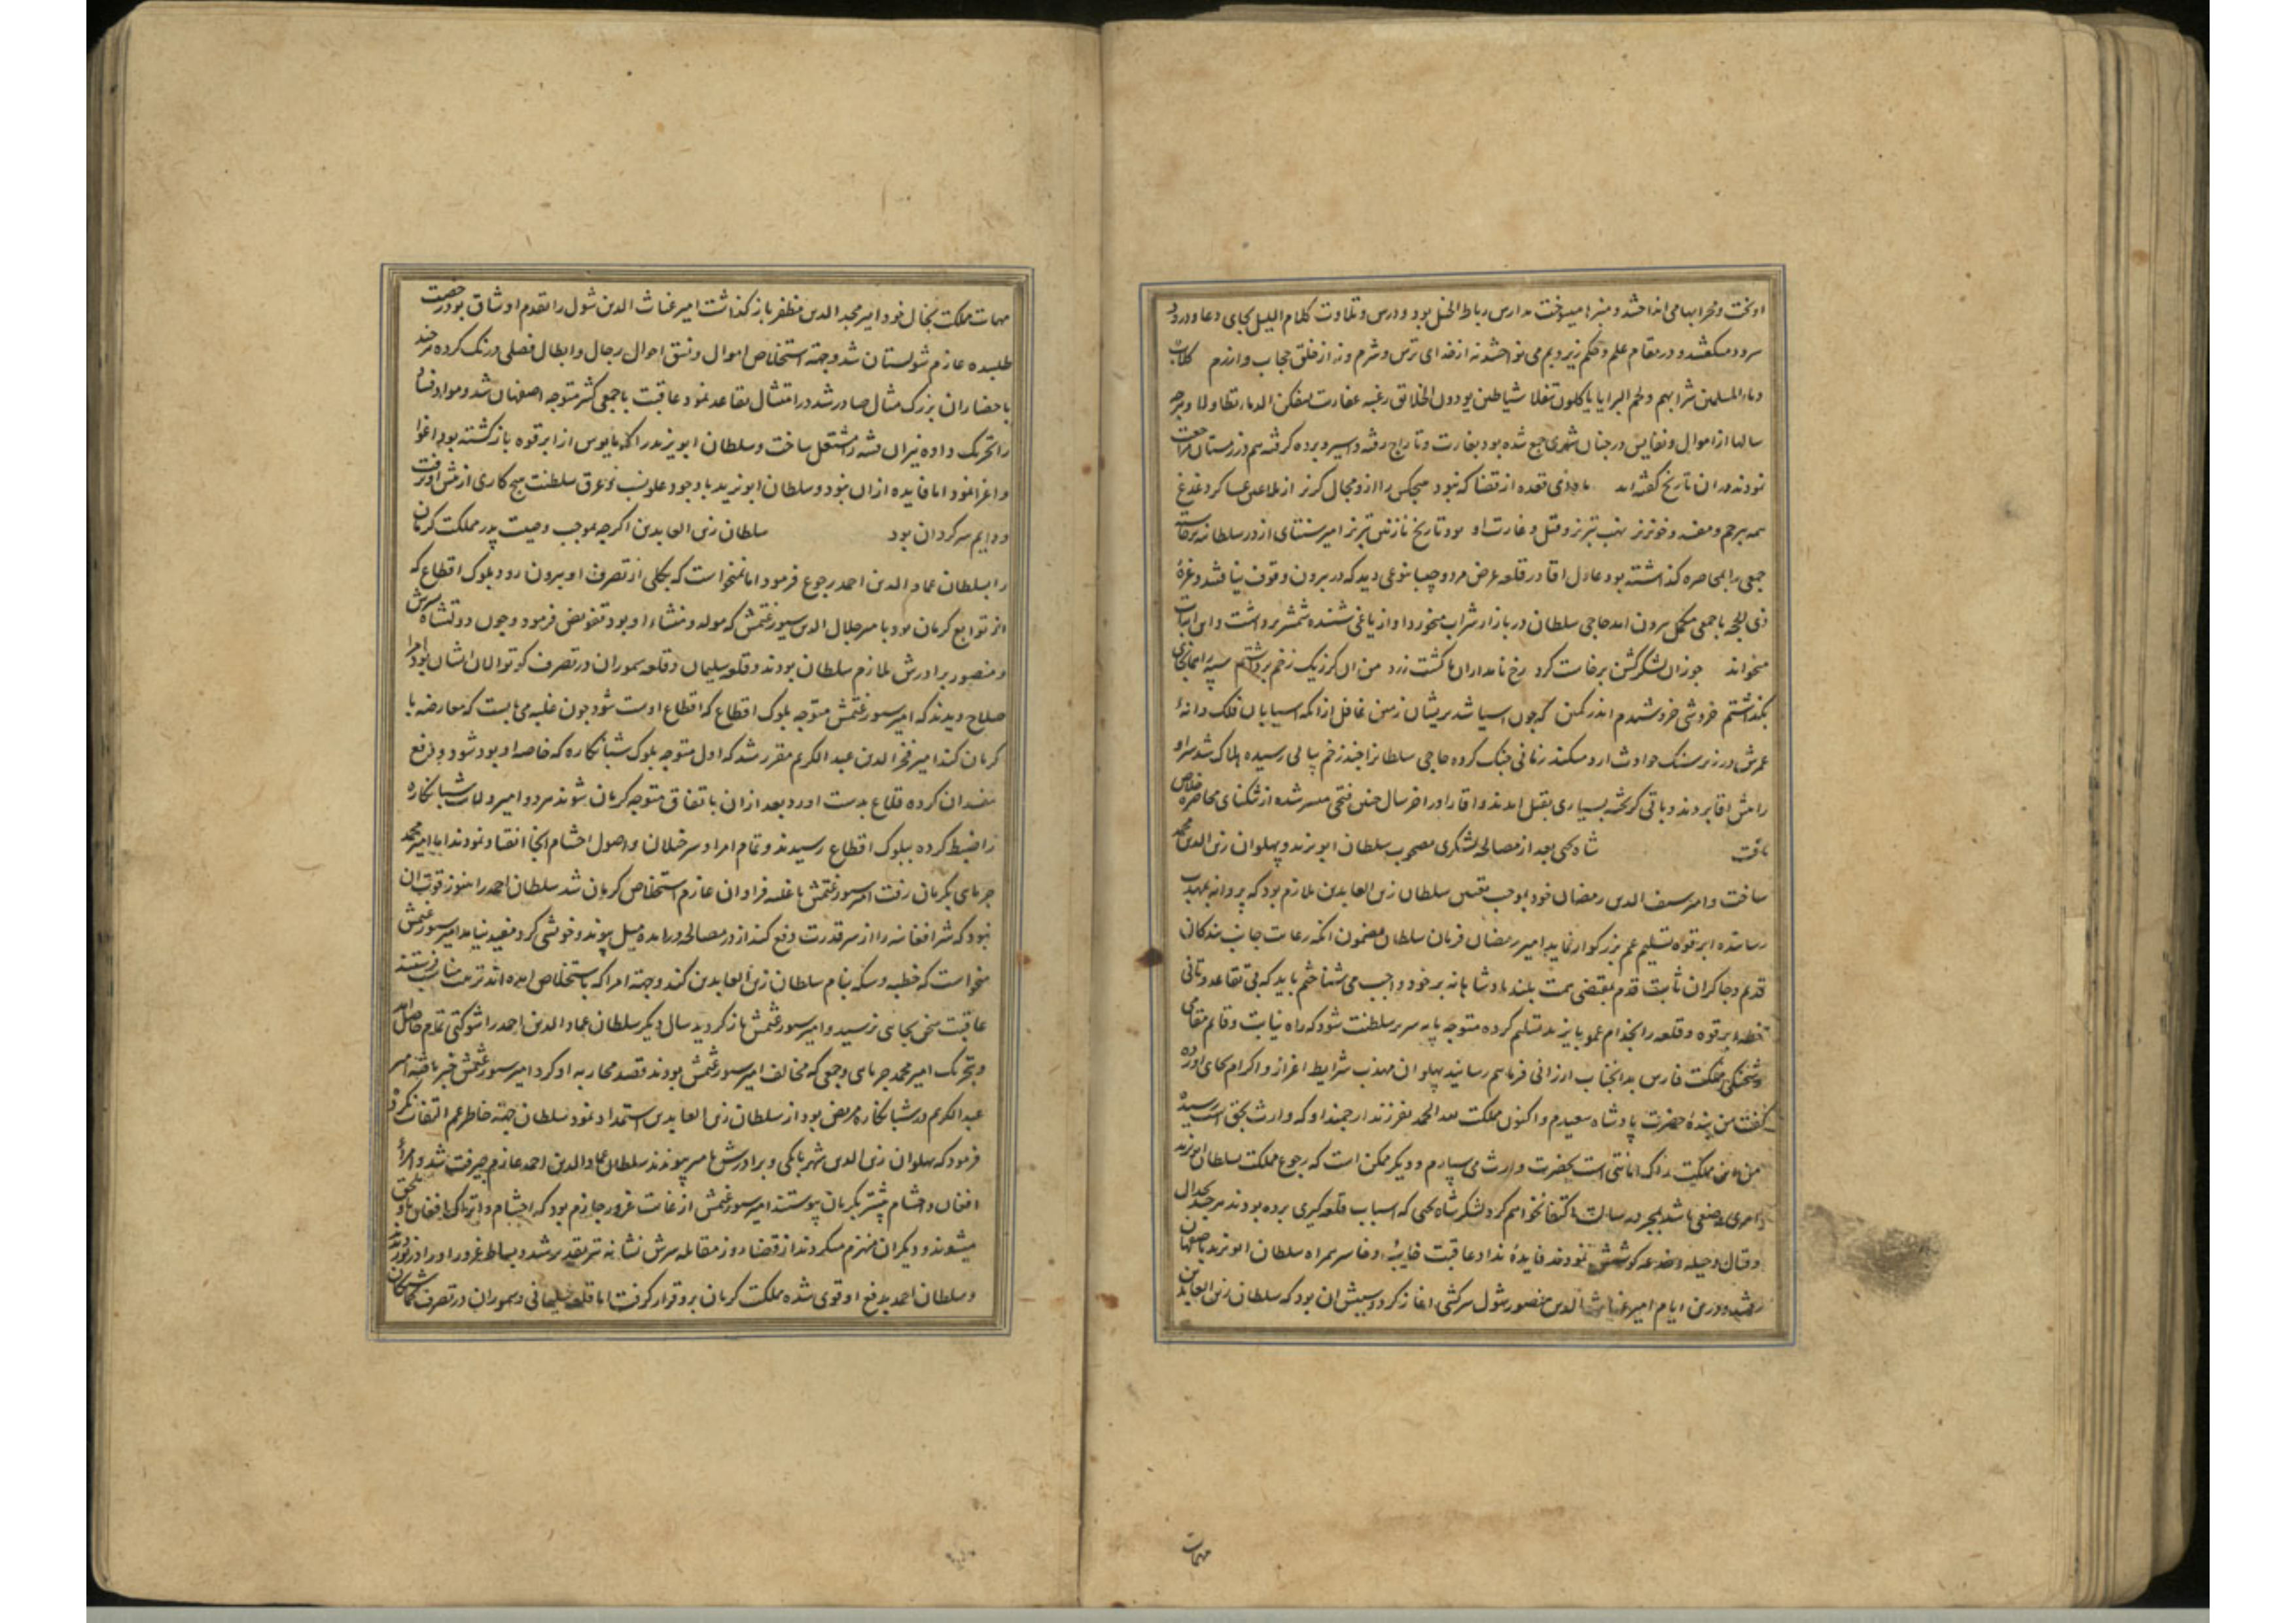 سرود میکفتند و در مقام علم و حکم زیر و بم می نواختند نه از خدای ترس و شرم و نه از خلق حجاب و ازرم
دماء المسلمین شرابهم و لحم البرایا یاکلون تنقلا
سالها از اموال و نفایس در چنان شهری جمع شده بود بغارت و تاراج رفته و اسیر و برده کرفته هم در زمستان مراجعت
نمودند و در ان تاریخ کفته اند ماه ذی قعده از قضا که نبود هیچکس را ازو مجال کریز
همه بیرحم و مفسد و خونریز نهب تبریز و قتل و غارت او بود تاریخ نازنین تبریز
جمعی را بمحاصره کذاشته بود عادل اقا در قلعه عرض مرد و جیبا نوعی دید که در بیرون وقوف نیافتند و غرهٔ
ذی الحجه با جمعی مکمل بیرون امد حاجی سلطان در بازار شراب میخورد اواز یاغی شنیده شمشیر برداشت و این ابیات
میخواند چو زان لشکر کشن برخاست کرد رخ نامداران ما کشت زرد من ان کرز یک زخم برداشتم سپه را همانجای
بکذاشتم خروشی خروشیدم اندر کمین که چون اسیا شد بریشان زمین غافل ازانکه اسیابان فلک دانهٔ
عمرش در زیر سنک حوادث ارد میکند زمانی جنک کرده حاجی سلطانرا چند زخم پیاپی رسیده هلاک شد سر او
را پیش اقا بردند و باقی کریخته بسیاری بقتل امدند و اقا را در اخر سال چنین فتحی میسر شده از تنکنای محاصره خلاص
یافت شاه یحیی بعد از مصالحه لشکری مصحوب سلطان ابو یزید و پهلوان زین الدین محمد
ساخت و امیر سیف الدین رمضان خود بموجب تعیین سلطان زین العابدین ملازم بود که پروانه بمهذب
رسانده ابرقوه تسلیم عم بزرکوار نماید امیر رمضان فرمان سلطان مضمون انکه رعایت جانب بندکان
قدیم و چاکران ثابت قدم بمقتضی همت بلند پادشاهانه بر خود واجب می شناختم باید که بی تقاعد و توانی
خطه ابرقوه و قلعه را بخدام عمو بایزید تسلیم کرده متوجه پایه سریر سلطنت شود که راه نیابت و قایم مقامی
و شحنکی مملکت فارس بدانجناب ارزانی فرمایم رسانید پهلوان مهذب شرایط اعزاز و اکرام بجای اورده
کفت من بندهٔ حضرت پادشاه سعیدم و اکنون مملکت لله الحمد بفرزند ارجمند او که وارث بحق است رسیده
من این مملکت را که امانتی است بحضرت وارث می سپارم و دیکر ممکن است که رجوع مملکت بسلطان ابو یزید
امری صنعی باشد بمجرد رسالت اکتفا نخواهم کرد لشکر شاه یحیی که اسباب قلعه کیری برده بودند هرچند بجدال
و قتال و حیله و خدعه کوشش نمودند فایدهٔ نداد عاقبت خایب و خاسر همراه سلطان ابو یزید باصفهان
رفتند و درین ایام امیر غیاث الدین منصور شول سرکشی اغاز کرد و سببش ان بود که سلطان زین العابدین
مهمات
مهمات مملکت بخال خود امیر مجد الدین مظفر باز کذاشت امیر غیاث الدین شول را تقدم او شاق بود رخصت
طلبیده عازم شولستان شد و جهة استخلاص اموال و نسق احوال رجال و ابطال فصلی درنک کرده هرچند
باحضار ان بزرک مثال صادر شد در امتثال تقاعد نمود عاقبت با جمعی کثیر متوجه اصفهان شد و مواد فساد
را تحریک داده نیران فتنه را مشتعل ساخت و سلطان ابو یزید را که مایوس از ابرقوه باز کشته بود اغوا
و اغرا نمود اما فایده ازان نبود و سلطان ابو یزید با وجود علو نسب و عرق سلطنت هیچ کاری از پیش او نرفت
و دایم سرکردان بود سلطان زین العابدین اکرچه بموجب وصیت پدر مملکت کرمان
را بسلطان عماد الدین احمد رجوع فرمود اما نمیخواست که بکلی از تصرف او بیرون رود بلوک اقطاع که
از توابع کرمان بود بامیر جلال الدین سیورغتمش که مولد و منشاء او بود تفویض فرمود و چون دولتشاه پسرش
و منصور برادرش ملازم سلطان بودند و قلعه سلیمان و قلعه سموران در تصرف کوتوالان ایشان بود امرا
صلاح دیدند که امیر سیورغتمش متوجه بلوک اقطاع که اقطاع اوست شود چون غلبه می بایست که معارضه با
کرمان کند امیر فخر الدین عبد الکریم مقرر شد که اول متوجه بلوک شبانکاره که خاصه او بود شود و دفع
مفسدان کرده قلاع بدست اورد و بعد ازان باتفاق متوجه کرمان شوند هر دو امیر ولایت شبانکاره
را ضبط کرده ببلوک اقطاع رسیدند و تمام امرا و سرخیلان و اصول احشام انجا انقیاد نمودند اما امیر محمد
جرمای بکرمان رفت امیر سیورغتمش با غلبه فراوان عازم استخلاص کرمان شد سلطان احمد را هنوز قوت ان
نبود که شر افغانیه را از سر قدرت دفع کند از در مصالحه در امده میل پیوند و خوشی کرد مفید نیامد امیر سیورغتمش
میخواست که خطبه و سکه بنام سلطان زین العابدین کند و جهة امرا که باستخلاص امده اند تربیت مناسب فرستند
عاقبت سخن بجای نرسید و امیر سیورغتمش باز کردید سال دیکر سلطان عماد الدین احمد را شوکتی تمام حاصل امد
و بتحریک امیر محمد جرمای و جمعی که مخالف امیر سیورغتمش بودند قصد محاربه او کرد امیر سیورغتمش خبر یافته امیر
عبد الکریم در شبانکاره مریض بود از سلطان زین العابدین استمداد نمود سلطان جهة خاطر عم التفات نکرد
فرمود که پهلوان زین الدین شهر بابکی و برادرش بامیر پیوندند سلطان عماد الدین احمد عازم جیرفت شد و امراء
افغان و احشام پیشتر بکرمان پیوستند امیر سیورغتمش از غایت غرور جازم بود که احشام و اتراک بافغان ملحق
میشوند و دیکران منهزم میکردند از قضا روز مقابله سرش نشانه تیر تقدیر شد و بساط غرور او را در نوردیدند
و سلطان احمد بدفع او قوی شده مملکت کرمان برو قرار کرفت اما قلعه سلیمانی و سموران در تصرف کماشتکان